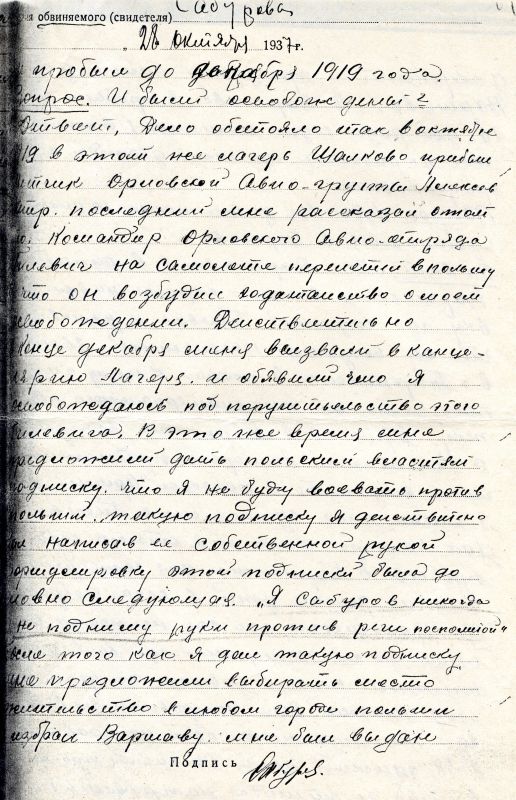 обвиняемого (свидетеля) Сабурова
„28 октября 1937 г.
и пробыл до декабря 1919 года.
Вопрос. И были освобождены?
Ответ. Дело обстояло так в октябре
19 в этот же лагерь Щалково прибыл
летчик Орловской Авио-группы Алексев
последний мне рассказал о том
Командир Орловского Авио-отряда
на самолете перелетел в польшу
что он возбудил ходатайство о моем
освобождении. Действительно
конце декабря меня вызвали в канце-
лярию лагеря, и обявили что я
освобождаюсь под поручительство этого
В это же время мне
предложили дать польским властям
подписку, что я не буду воевать против
польши. такую подписку я действительно
дал написав ее собственной рукой
формулировку этой подписки была до
словно следующая. „Я Сабуров никогда
не подниму руки против речи посполитой"
после того как я дал такую подписку
мне предложили выбирать место
жительство в любом городе польши
избрал Варшаву. мне был выдан
Подпись Сабуров.